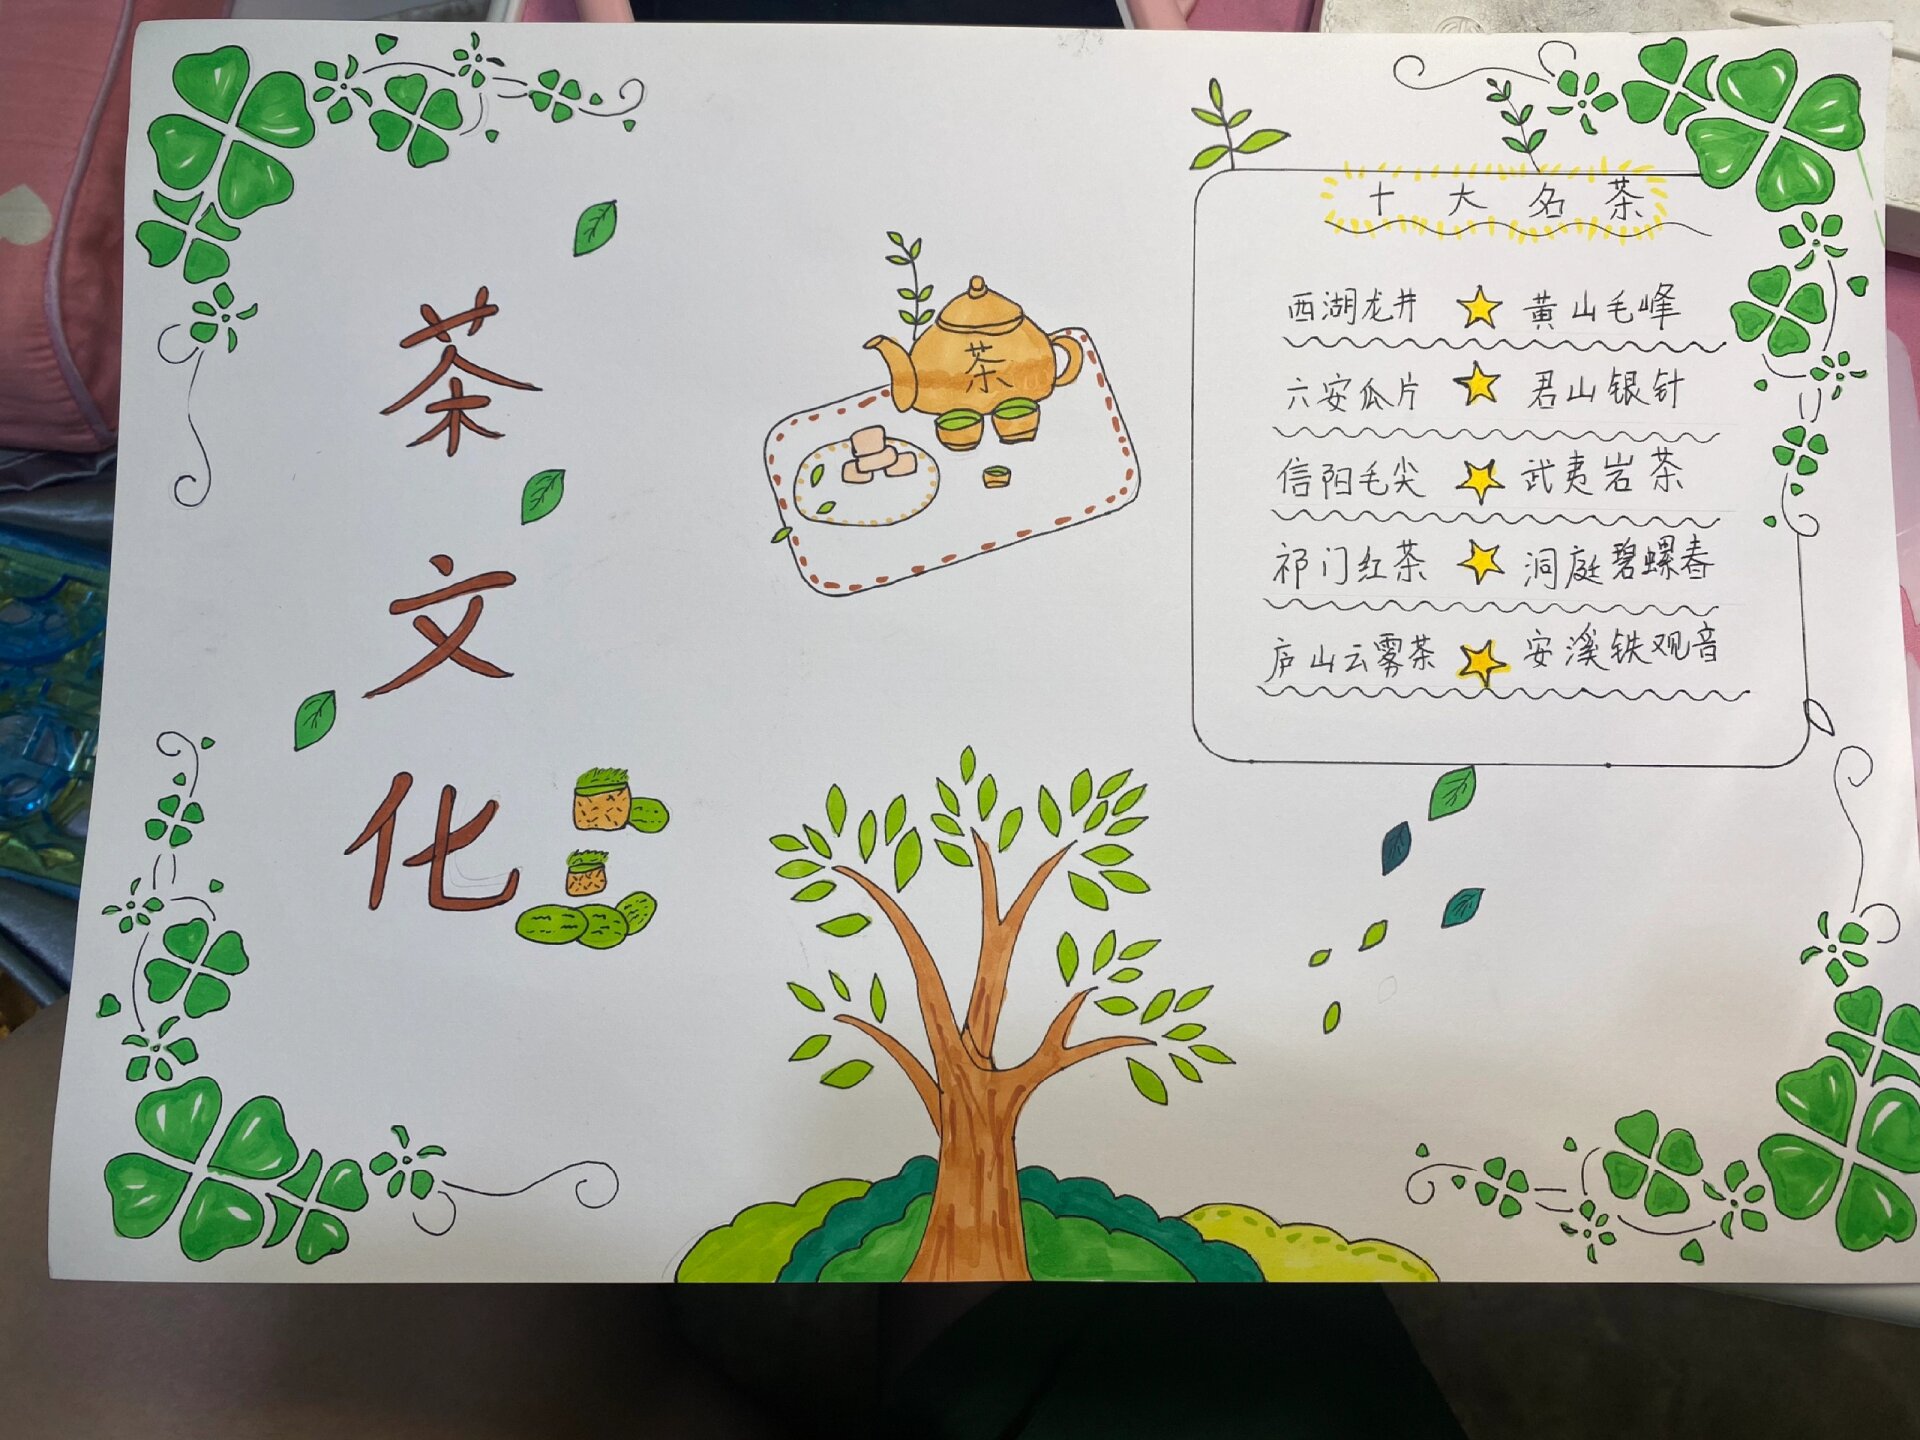 茶文化
茶
十大名茶
西湖龙井 黄山毛峰
六安瓜片 君山银针
信阳毛尖 武夷岩茶
祁门红茶 洞庭碧螺春
庐山云雾茶 安溪铁观音